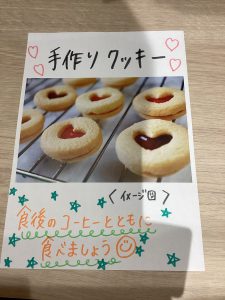 手作りクッキー
<イメージ図>
食後のコーヒーとともに
食べましょう